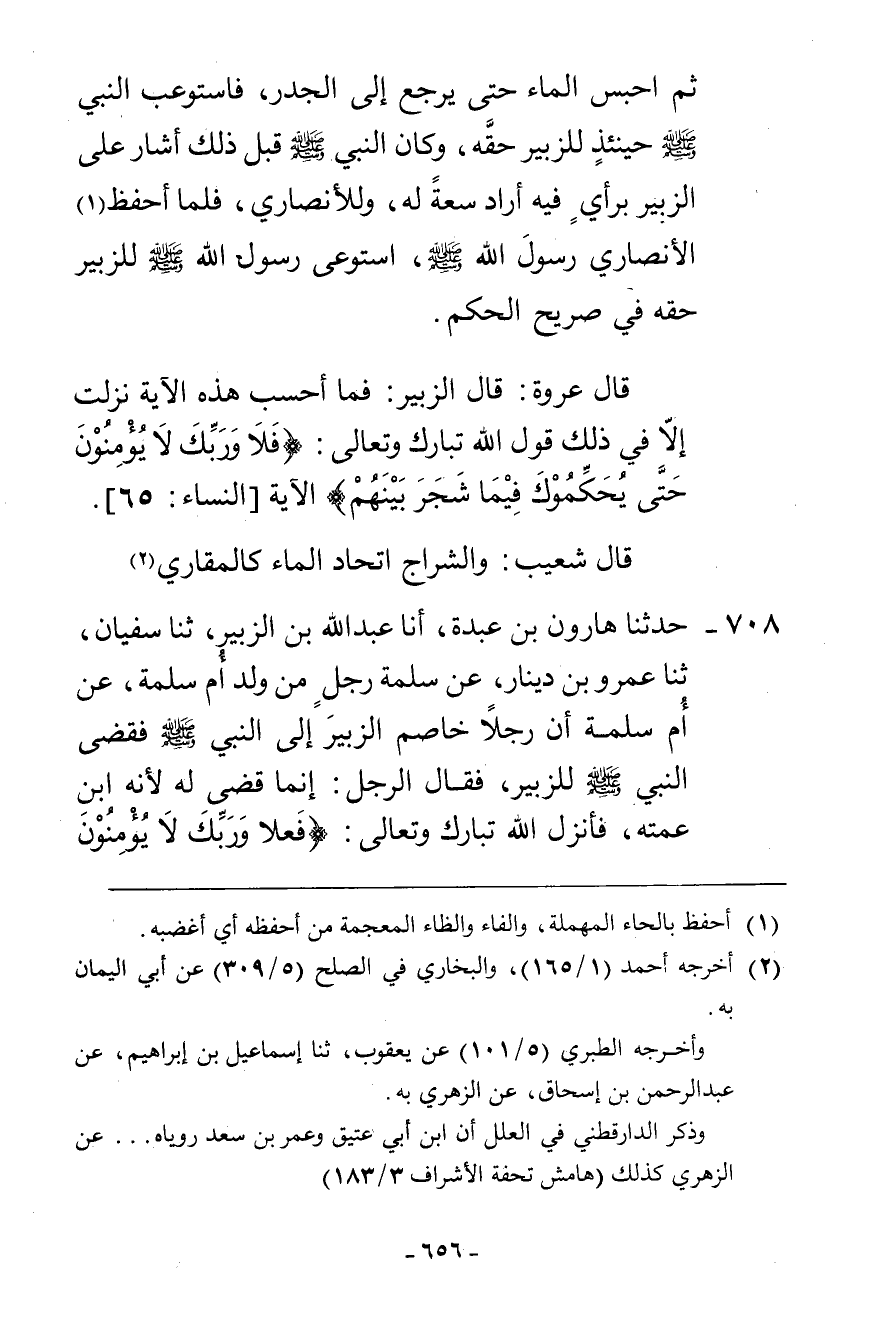 ثم احبس الماء حتى يرجع إلى الجدر، فاستوعب النبي
ﷺ حينئذٍ للزبير حقَّه، وكان النبي ﷺ قبل ذلك أشار على
الزبير برأيٍ فيه أراد سعةً له، وللأنصاري، فلما أحفظ(١)
الأنصاري رسولَ الله ﷺ، استوعى رسول الله ﷺ للزبير
حقه في صريح الحكم.
قال عروة: قال الزبير: فما أحسب هذه الآية نزلت
إلّا في ذلك قول الله تبارك وتعالى: ﴿فَلَا وَرَبِّكَ لَا يُؤْمِنُوْنَ
حَتَّى يُحَكِّمُوْكَ فِيْمَا شَجَرَ بَيْنَهُمْ﴾ الآية [النساء: ٦٥].
قال شعيب: والشراج اتحاد الماء كالمقاري(٢)
٧٠٨ - حدثنا هارون بن عبدة، أنا عبدالله بن الزبير، ثنا سفيان،
ثنا عمرو بن دينار، عن سلمة رجلٍ من ولد أُم سلمة، عن
أُم سلمة أن رجلًا خاصم الزبيرَ إلى النبي ﷺ فقضى
النبي ﷺ للزبير، فقال الرجل: إنما قضى له لأنه ابن
عمته، فأنزل الله تبارك وتعالى: ﴿فَعلا وَرَبِّكَ لَا يُؤْمِنُوْنَ
(١) أحفظ بالحاء المهملة، والفاء والظاء المعجمة من أحفظه أي أغضبه.
(٢) أخرجه أحمد (١/١٦٥)، والبخاري في الصلح (٥/٣٠٩) عن أبي اليمان
به.
وأخرجه الطبري (٥/١٠١) عن يعقوب، ثنا إسماعيل بن إبراهيم، عن
عبدالرحمن بن إسحاق، عن الزهري به.
وذكر الدارقطني في العلل أن ابن أبي عتيق وعمر بن سعد روياه... عن
الزهري كذلك (هامش تحفة الأشراف ٣/١٨٣)
- ٦٥٦ -